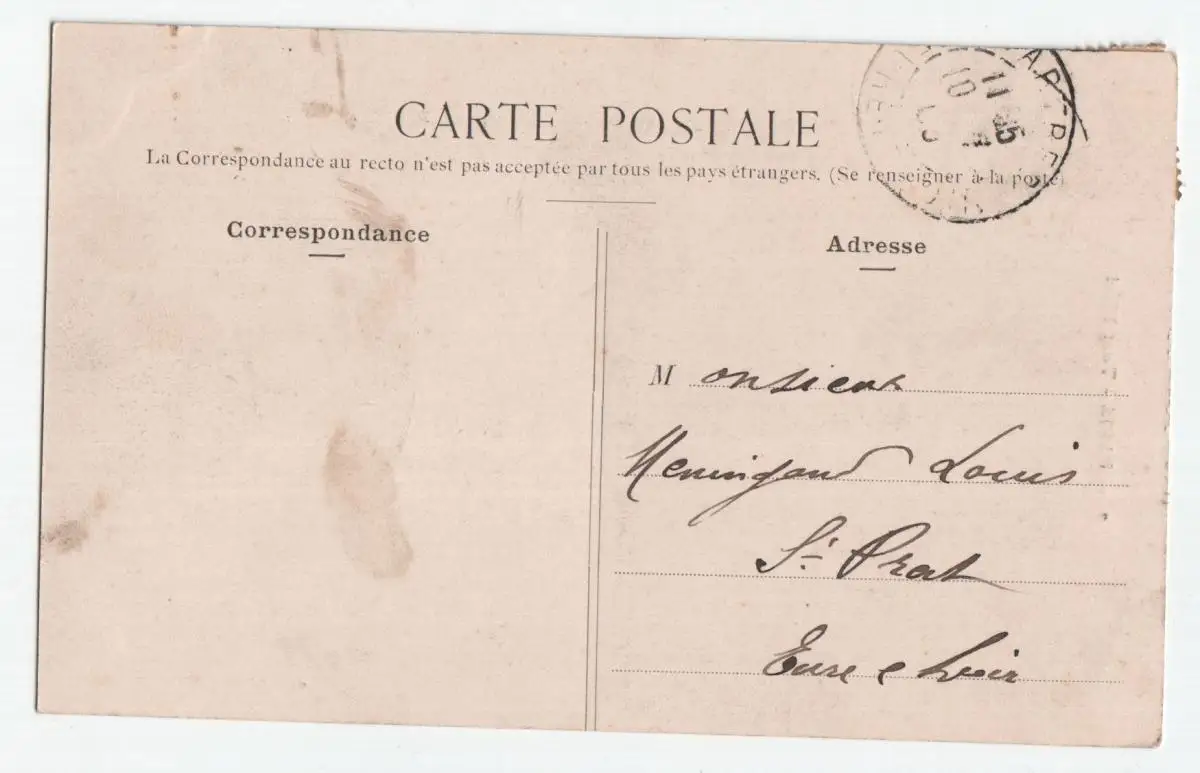 CARTE POSTALE
La Correspondance au recto n'est pas acceptée par tous les pays étrangers. (Se renseigner à la poste)
Correspondance
Adresse
Monsieur
Louis
St Prest
Eure e Loir